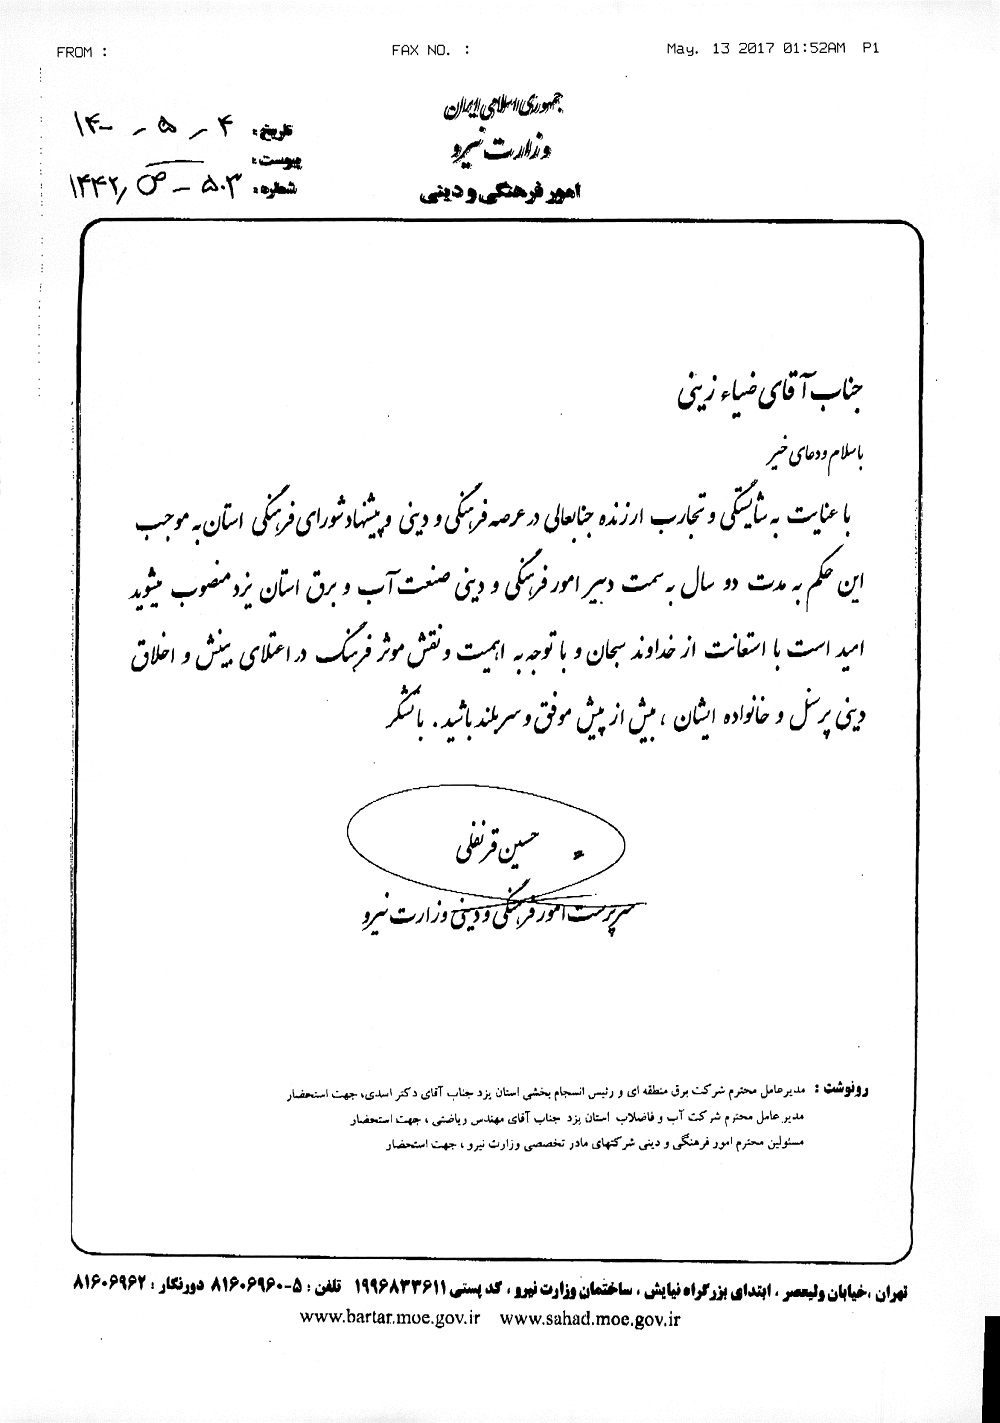 FROM :
FAX NO. :
May. 13 2017 01:52AM P1
جمهوری اسلامی ایران
وزارت نیرو
امور فرهنگی و دینی
تاریخ: ۱۴۰۰ - ۵ - ۴
پیوست:
شماره: ۵۰۳ - ص / ۱۴۴۲
جناب آقای ضیاء زینی
با سلام و دعای خیر
با عنایت به شایستگی و تجارب ارزنده جنابعالی در عرصه فرهنگی و دینی و پیشنهاد شورای فرهنگی استان به موجب
این حکم به مدت دو سال به سمت دبیر امور فرهنگی و دینی صنعت آب و برق استان یزد منصوب میشوید
امید است با استعانت از خداوند سبحان و با توجه به اهمیت و نقش موثر فرهنگ در اعتلای بینش و اخلاق
دینی پرسنل و خانواده ایشان ، بیش از پیش موفق و سربلند باشید. با تشکر
حسین قرنفلی
سرپرست امور فرهنگی و دینی وزارت نیرو
رونوشت : مدیرعامل محترم شرکت برق منطقه ای و رئیس انسجام بخشی استان یزد جناب آقای دکتر اسدی، جهت استحضار
مدیر عامل محترم شرکت آب و فاضلاب استان یزد جناب آقای مهندس ریاضتی ، جهت استحضار
مسئولین محترم امور فرهنگی و دینی شرکتهای مادر تخصصی وزارت نیرو ، جهت استحضار
تهران ،خیابان ولیعصر ، ابتدای بزرگراه نیایش ، ساختمان وزارت نیرو ، کد پستی ۱۹۹۶۸۳۳۶۱۱ تلفن : ۵-۸۱۶۰۶۹۶۰ دورنگار : ۸۱۶۰۶۹۶۲
www.bartar.moe.gov.ir www.sahad.moe.gov.ir